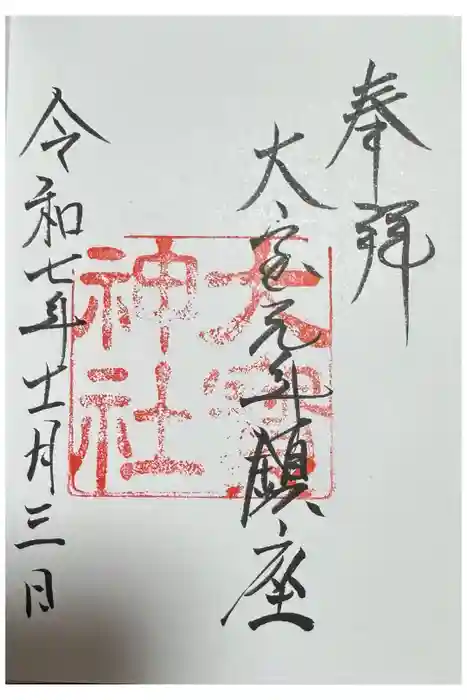 奉拝
大宝元年鎮座
大寳神社
令和七年十一月三日